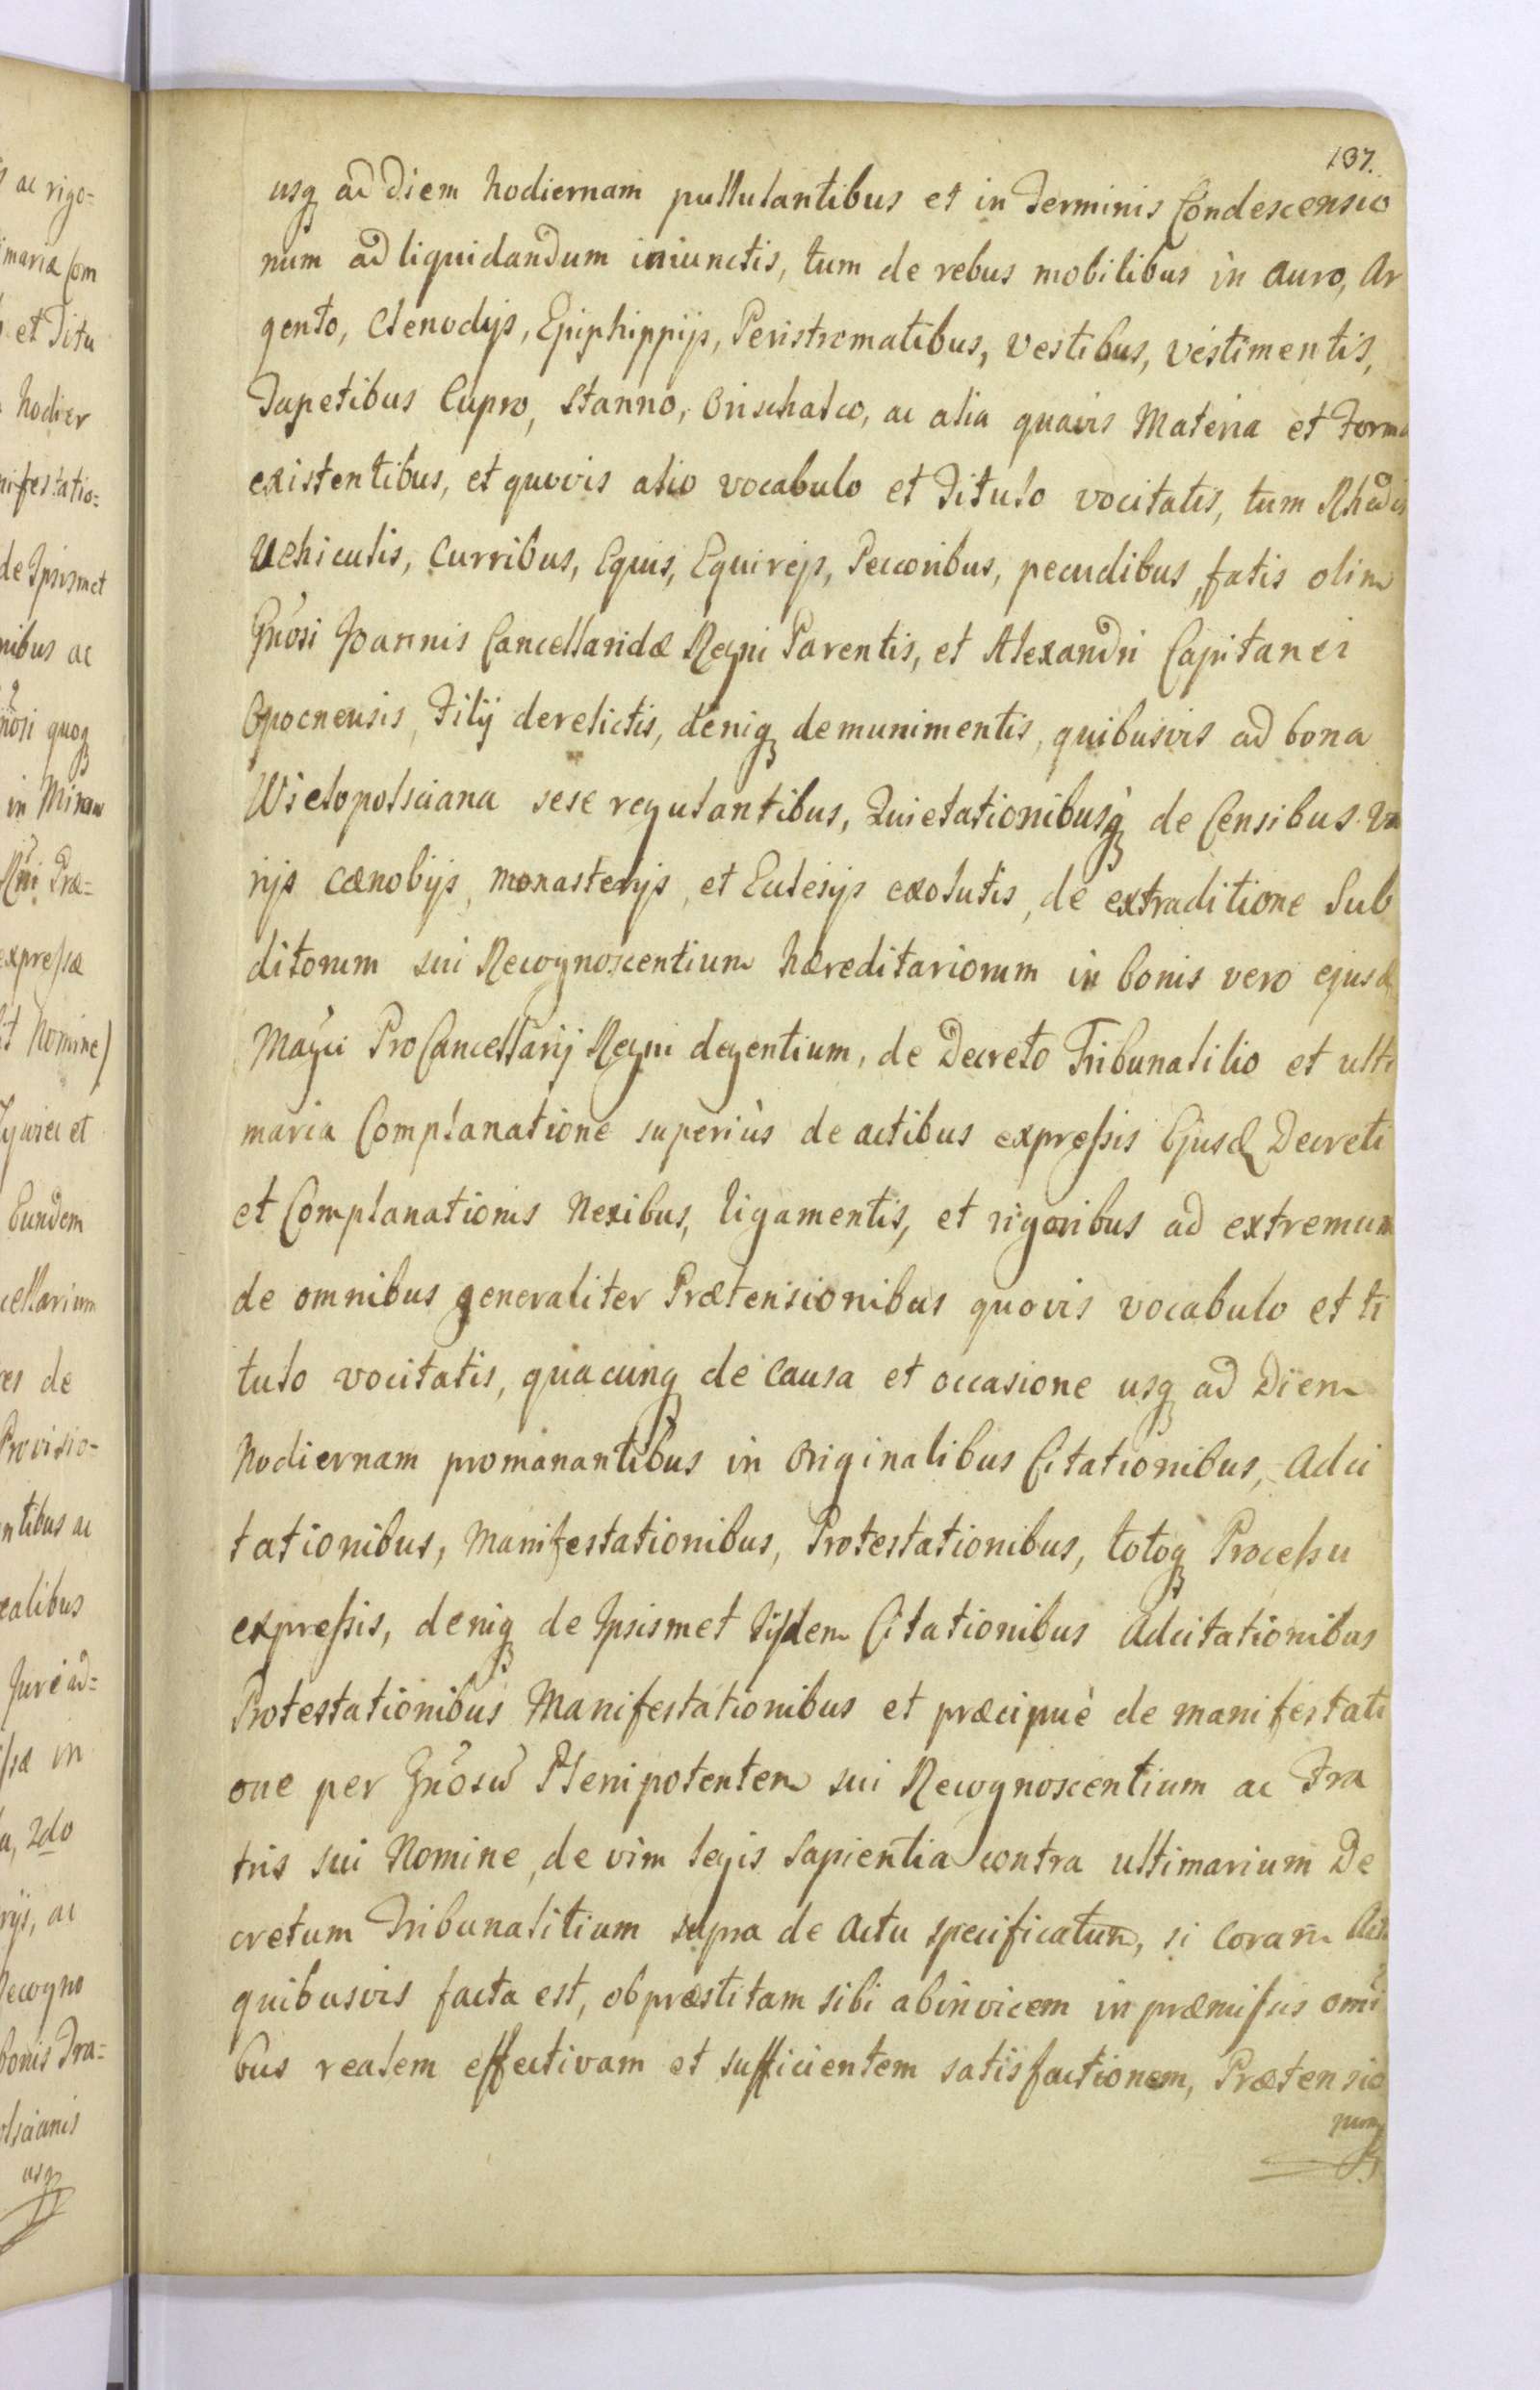 137.
usq ad diem hodiernam pullulantibus et in Terminis Condescensio
num ad liquidandum iniunctis, tum de rebus mobilibus in auro, Ar
gento, Clenodijs, Ephiphippijs, Peristromatibus, vestibus, vestimentis,
Tapetibus Cupro, Stanno, Orischalco, ac alia quavis Materia et Forma
existentibus, et quovis alio vocabulo et Titulo vocitatis, tum Rhedis
Vehiculis, Curribus, Equis, Equireijs, Pecoribus, pecudibus, fatis olim
Gnosi Joannis Cancellaridæ Regni Parentis, et Alexandri Capitanei
Opocnensis, Filij derelictis, deniq de munimentis, quibusvis ad bona
Wielopolsciana sese regulantibus, Quietationibusq de Censibus va
rijs cænobijs, monasterijs, et Eclesijs exolutis, de extraditione Sub
ditorum sui Recognoscentium hæreditariorum in bonis vero ejusd
Magci ProCancellarij Regni degentium, de Decreto Tribunalilio et ulti
maria Complanatione superiùs de actibus expressis Ejusd Decreti
et Complanationis Nexibus, ligamentis, et rigoribus ad extremum
de omnibus generaliter Prætensionibus quovis vocabulo et ti
tulo vocitatis, quacunq de causa et occasione usq ad Diem
hodiernam promanantibus in Originalibus Citationibus, Adci
tationibus, Manifestationibus, Protestationibus, totoq Processu
expressis, deniq de Ipsismet Iisdem Citationibus Adcitationibus
Protestationibus Manifestationibus et præcipuè de manifestati
one per Gnosum Plenipotentem sui Recognoscentium ac Fra
tris sui Nomine, de vim legis sapientia contra ultimarium De
cretum Tribunalitium supra de Actu specificatum, si coram Actis
quibusvis facta est, ob præstitam sibi abinvicem in præmissis omi
bus realem effectivam et sufficientem satisfactionem, Prætensio
num